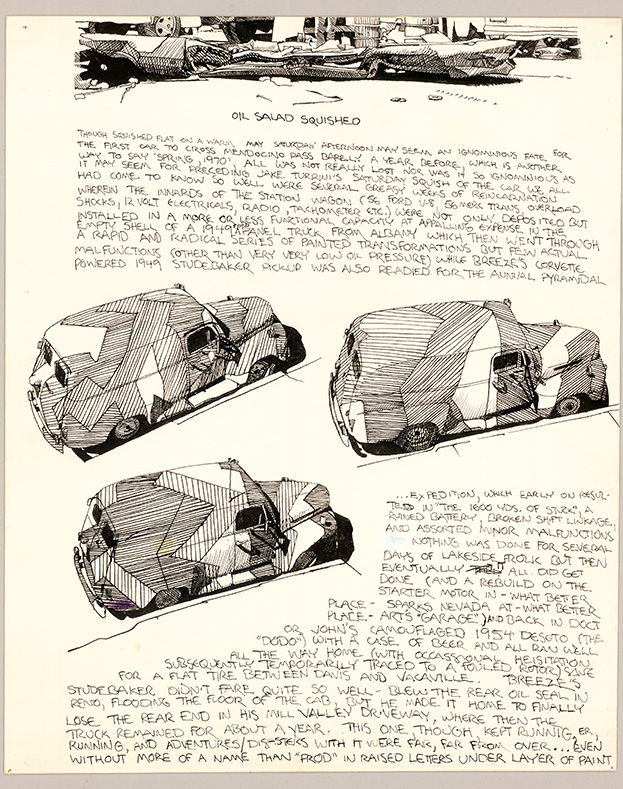 OIL SALAD SQUISHED
THOUGH SQUISHED FLAT ON A WARM MAY SATURDAY AFTERNOON MAY SEEM AN IGNOMINIOUS FATE FOR
THE FIRST CAR TO CROSS MENDOCINO PASS BARELY A YEAR BEFORE, WHICH IS ANOTHER
WAY TO SAY 'SPRING, 1970', ALL WAS NOT REALLY LOST NOR WAS IT SO IGNOMINIOUS AS
IT MAY SEEM FOR PRECEDING JAKE TURPIN'S SATURDAY SQUISH OF THE CAR WE ALL
HAD COME TO KNOW SO WELL WERE SEVERAL GREASY WEEKS OF REINCARNATION
WHEREIN THE INNARDS OF THE STATION WAGON (56 FORD V-8, 56 MERC TRANS, OVERLOAD
SHOCKS, 12 VOLT ELECTRICALS, RADIO, TACHOMETER ETC.) WERE NOT ONLY DEPOSITED BUT
INSTALLED IN A MORE OR LESS FUNCTIONAL CAPACITY AT APPALLING EXPENSE IN THE
EMPTY SHELL OF A 1949 PANEL TRUCK FROM ALBANY WHICH THEN WENT THROUGH
A RAPID AND RADICAL SERIES OF PAINTED TRANSFORMATIONS BUT FEW ACTUAL
MALFUNCTIONS (OTHER THAN VERY VERY LOW OIL PRESSURE) WHILE BREEZE'S CORVETTE
POWERED 1949 STUDEBAKER PICKUP WAS ALSO READIED FOR THE ANNUAL PYRAMIDAL
...EXPEDITION, WHICH EARLY ON RESUL-
TED IN "THE 1600 YDS. OF STUCK", A
RUINED BATTERY, BROKEN SHIFT LINKAGE,
AND ASSORTED MINOR MALFUNCTIONS
NOTHING WAS DONE FOR SEVERAL
DAYS OF LAKESIDE FROLIC BUT THEN
EVENTUALLY ALL DID GET
DONE (AND A REBUILD ON THE
STARTER MOTOR IN - WHAT BETTER
PLACE - SPARKS NEVADA AT - WHAT BETTER
PLACE - ART'S "GARAGE") AND BACK IN DOCT
OR, JOHN'S CAMOUFLAGED 1954 DESOTO (THE
"DODO") WITH A CASE OF BEER AND ALL RAN WELL
ALL THE WAY HOME (WITH OCCASSIONAL HEISITATION
SUBSEQUENTLY TEMPORARILY TRACED TO A FOULED ROTOR) SAVE
FOR A FLAT TIRE BETWEEN DAVIS AND VACAVILLE. BREEZE'S
STUDEBAKER DIDN'T FARE QUITE SO WELL - BLEW THE REAR OIL SEAL IN
RENO, FLOODING THE FLOOR OF THE CAB, BUT HE MADE IT HOME TO FINALLY
LOSE THE REAR END IN HIS MILL VALLEY DRIVEWAY, WHERE THEN THE
TRUCK REMAINED FOR ABOUT A YEAR. THIS ONE, THOUGH, KEPT RUNNIG, ER,
RUNNING, AND ADVENTURES/DISASTERS WITH IT WERE FAR, FAR FROM OVER... EVEN
WITHOUT MORE OF A NAME THAN "FROD" IN RAISED LETTERS UNDER LAYER OF PAINT